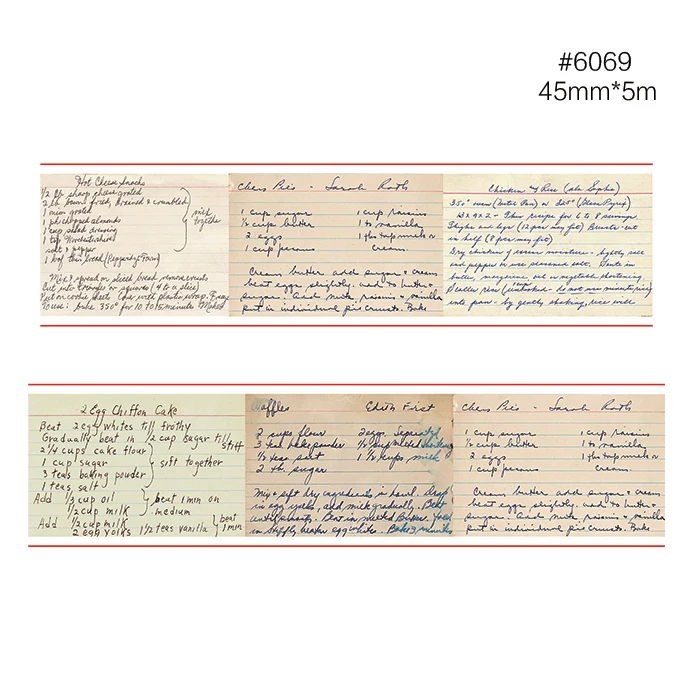 #6069
45mm*5m
Hot Cheese Snacks
1/2 lb sharp cheese grated
2 lb bacon fried, drained & crumbled
1 onion grated
1 pk chopped almonds
1 cup salad dressing
1 tsp Worchestershire
salt & pepper
1 loaf thin bread (Pepperidge Farm)
mix together
Mix & spread on sliced bread, remove crusts
Cut into triangles or squares (4 to a slice)
Put on cookie sheets Cover with plastic wrap. Freeze
To use: bake 350° for 10 to 15 minutes
Chess Pies - Sarah Roths
1 cup sugar 1 cup raisins
1/2 cup butter 1 ts vanilla
2 eggs 1 tbs top milk or
1 cup pecans cream.
Cream butter add sugar & cream
beat eggs slightly. add to butter &
sugar. Add nuts, raisins & vanilla
put in individual pie crusts. Bake
Chicken & Rice (ala Sophie)
350° oven (Metal Pan) or 325° (Glass Pyrex)
13 x 9 x 2 - Take recipe for 6 to 8 servings
Thighs and legs (12 pcs may fit) Breasts - cut
in half (8 pcs may fit)
Dry chicken / remove moisture - lightly salt
and pepper or use seasoned salt. Saute in
butter, margarine, oil or vegetable shortening
Scatter rice (uncooked - do not use minute rice)
into pan - by gently shaking, rice will
2 Egg Chiffon Cake
Beat 2 egg whites till frothy
Gradually beat in 1/2 cup sugar till stiff
2 1/4 cups cake flour
1 cup sugar
3 teas baking powder
1 teas salt
sift together
Add 1/3 cup oil
1/2 cup milk
beat 1 min on medium
Add 1/2 cup milk
2 egg yolks 1 1/2 teas vanilla
beat 1 min
Waffles Edith First
2 cups flour 2 eggs Separated
3 tea bake powder 1/2 cup melted shortening
1/2 tea salt 1 1/2 cups milk
2 tb sugar
Mix & sift dry ingredients in bowl. drop
in egg yolks, add milk gradually. Beat
Beat in melted Butter. Fold
in stiffly beaten egg whites. Bake 3 minutes
Chess Pies - Sarah Roths
1 cup sugar 1 cup raisins
1/2 cup butter 1 ts vanilla
2 eggs 1 tbs top milk or
1 cup pecans cream.
Cream butter add sugar & cream
beat eggs slightly. add to butter &
sugar. Add nuts, raisins & vanilla
put in individual pie crusts. Bake